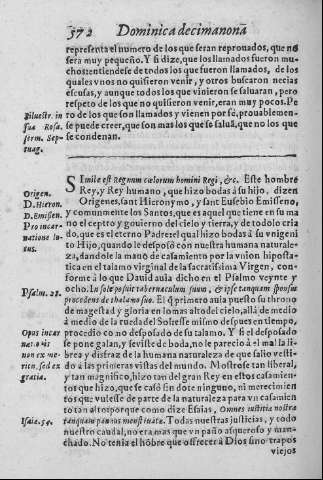 572 Dominica decimanona
representa el numero de los que seran reprouados, que no
sera muy pequeño. Y si dize, que los llamados fueron mu-
chos: entiendese de todos los que fueron llamados, de los
quales vnos no quisieron venir, y otros buscaron necias
escusas, y aunque todos los que vinieron se saluaran, pero
respeto de los que no quisieron venir, eran muy pocos. Pe
ro de los que son llamados y vienen por fè, prouablemen-
se puede creer, que son mas los que se saluã, que no los que
se condenan.
Siluestr. in
suæ Rosa.
serm. Sep-
tuag.
SImile est Regnum cœlorum homini Regi, &c. Este hombre
Rey, y Rey humano, que hizo bodas à su hijo, dizen
Origenes, sant Hieronymo, y sant Eusebio Emisseno,
y comunmente los Santos, que es aquel que tiene en su ma
no el ceptro y gouierno del cielo y tierra, y de todo lo cria
do, que es el eterno Padre: el qual hizo bodas à su vnigeni
to Hijo, quando le desposò con nuestra humana naturale-
za, dandole la mano de casamiento por la vnion hiposta-
tica en el talamo virginal de la sacratissima Virgen, con-
forme à lo que Dauid auia dicho en el Psalmo veynte y
ocho. In sole posuit tabernaculum suum, & ipse tanquam sponsus
procedens de thalamo suo. El q̃ primero auia puesto su throno
de magestad y gloria en lo mas alto del cielo, allà de medio
à medio de la rueda del Sol: esse mismo despues en tiempo,
procedio como desposado de su talamo. Y si el desposado
se pone galan, y se viste de boda, no le parecio à el mal la li-
brea y disfraz de la humana naturaleza de que salio vesti-
do à las primeras vistas del mundo. Mostrose tan liberal,
y tan magnifico, hizo tan del gran Rey en estos casamien-
tos que hizo, que se casò sin dote ninguno, ni merecimien
tos que vuiesse de parte de la naturaleza para vn casamien
to tan alto: porque como dize Esaias, Omnes iustitiæ nostræ
tanquam pannus menstruatæ. Todas nuestras justicias, y todo
nuestro caudal, no era mas que vn paño asqueroso y man-
chado. No tenia el hõbre que offrecer à Dios sino trapos
viejos
Origen.
D. Hieron.
D. Emissen.
Pro incar-
natione la-
tus.
Psalm. 28.
Opus incar
nationis
non ex me-
ritis, sed ex
gratia.
Isaie. 54.